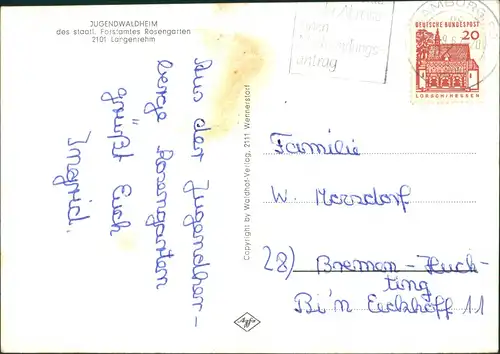 JUGENDWALDHEIM
des staatl. Forstamtes Rosengarten
2101 Langenrehm
Aus der Jugendher-
berge Rosengarten
grüßt Euch
Ingrid.
Copyright by Waldhof-Verlag, 2111 Wennerstorf
Agfa
antrag
HAMBURG
DEUTSCHE BUNDESPOST
20
LORSCH/HESSEN
Familie
W. Morsdorf
28) Bremen-Huch-
ting
Bi'n Eickhoff 11